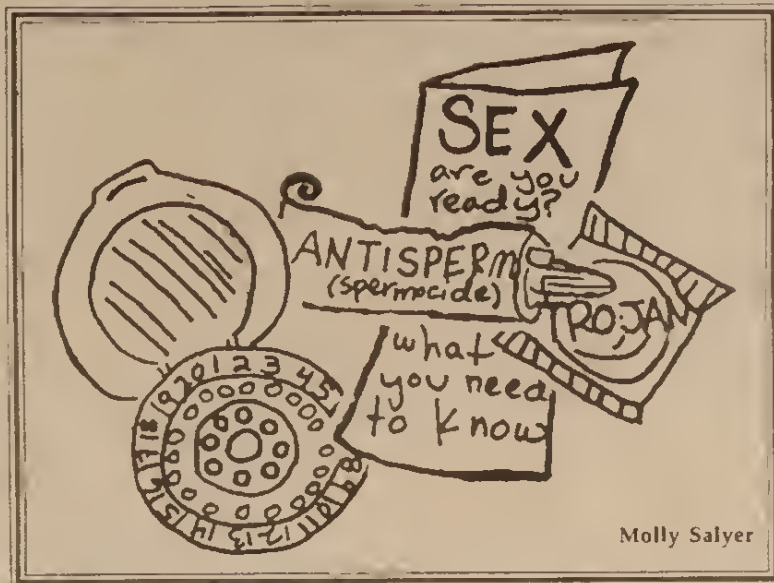 SEX
are you
ready?
ANTISPERM
(spermocide)
TROJAN
what
you need
to know
1 2 3 4 5
8 9 10 11 12 13 14 15 16 17 18 19 20
Molly Salyer